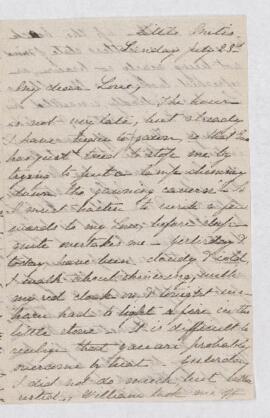 Sunday July 23d
My dear Love,
The hour
is not very late, but already
I have begun to yawn, so that
has just tried to stop me by
trying to put a lamp chimney
down the yawning cavern - So
I must hasten to write a few
words to my Love, before sleep
quite overtakes me - yesterday &
today have been cloudy & cold,
I walk about shivering, with
my red cloak on & tonight we
have had to light a fire in the
little stove - It is difficult to
realize that you are probably
overcome by heat - Yesterday
I did not do much but
William took me off